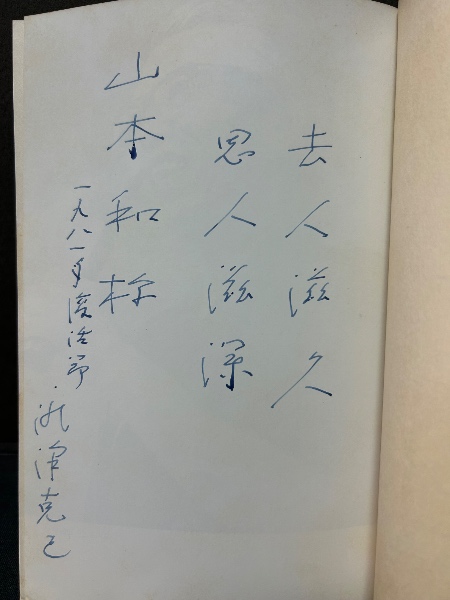 去人滋久
思人滋深
山本和様
一九八一年復活節
滝澤克己